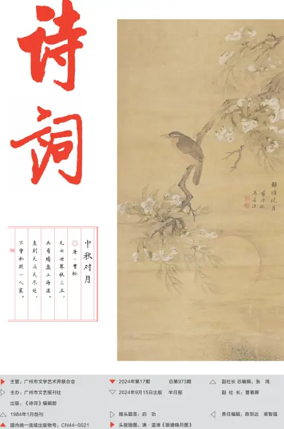 诗词
中秋对月
唐·曹松
无云世界秋三五
共看蟾盘上海涯
直到天头天尽处
不曾私照一人家
主管：广州市文学艺术界联合会
主办：广州市文艺报刊社
出版：《诗词》编辑部
1984年1月创刊
国内统一连续出版物号：CN44-0021
2024年第17期 总第973期
2024年9月15日出版 半月报
报头题签：启 功
头版插图：清·蓝涛
副社长 总编辑：张 鸿
副 社 长：
责任编辑：